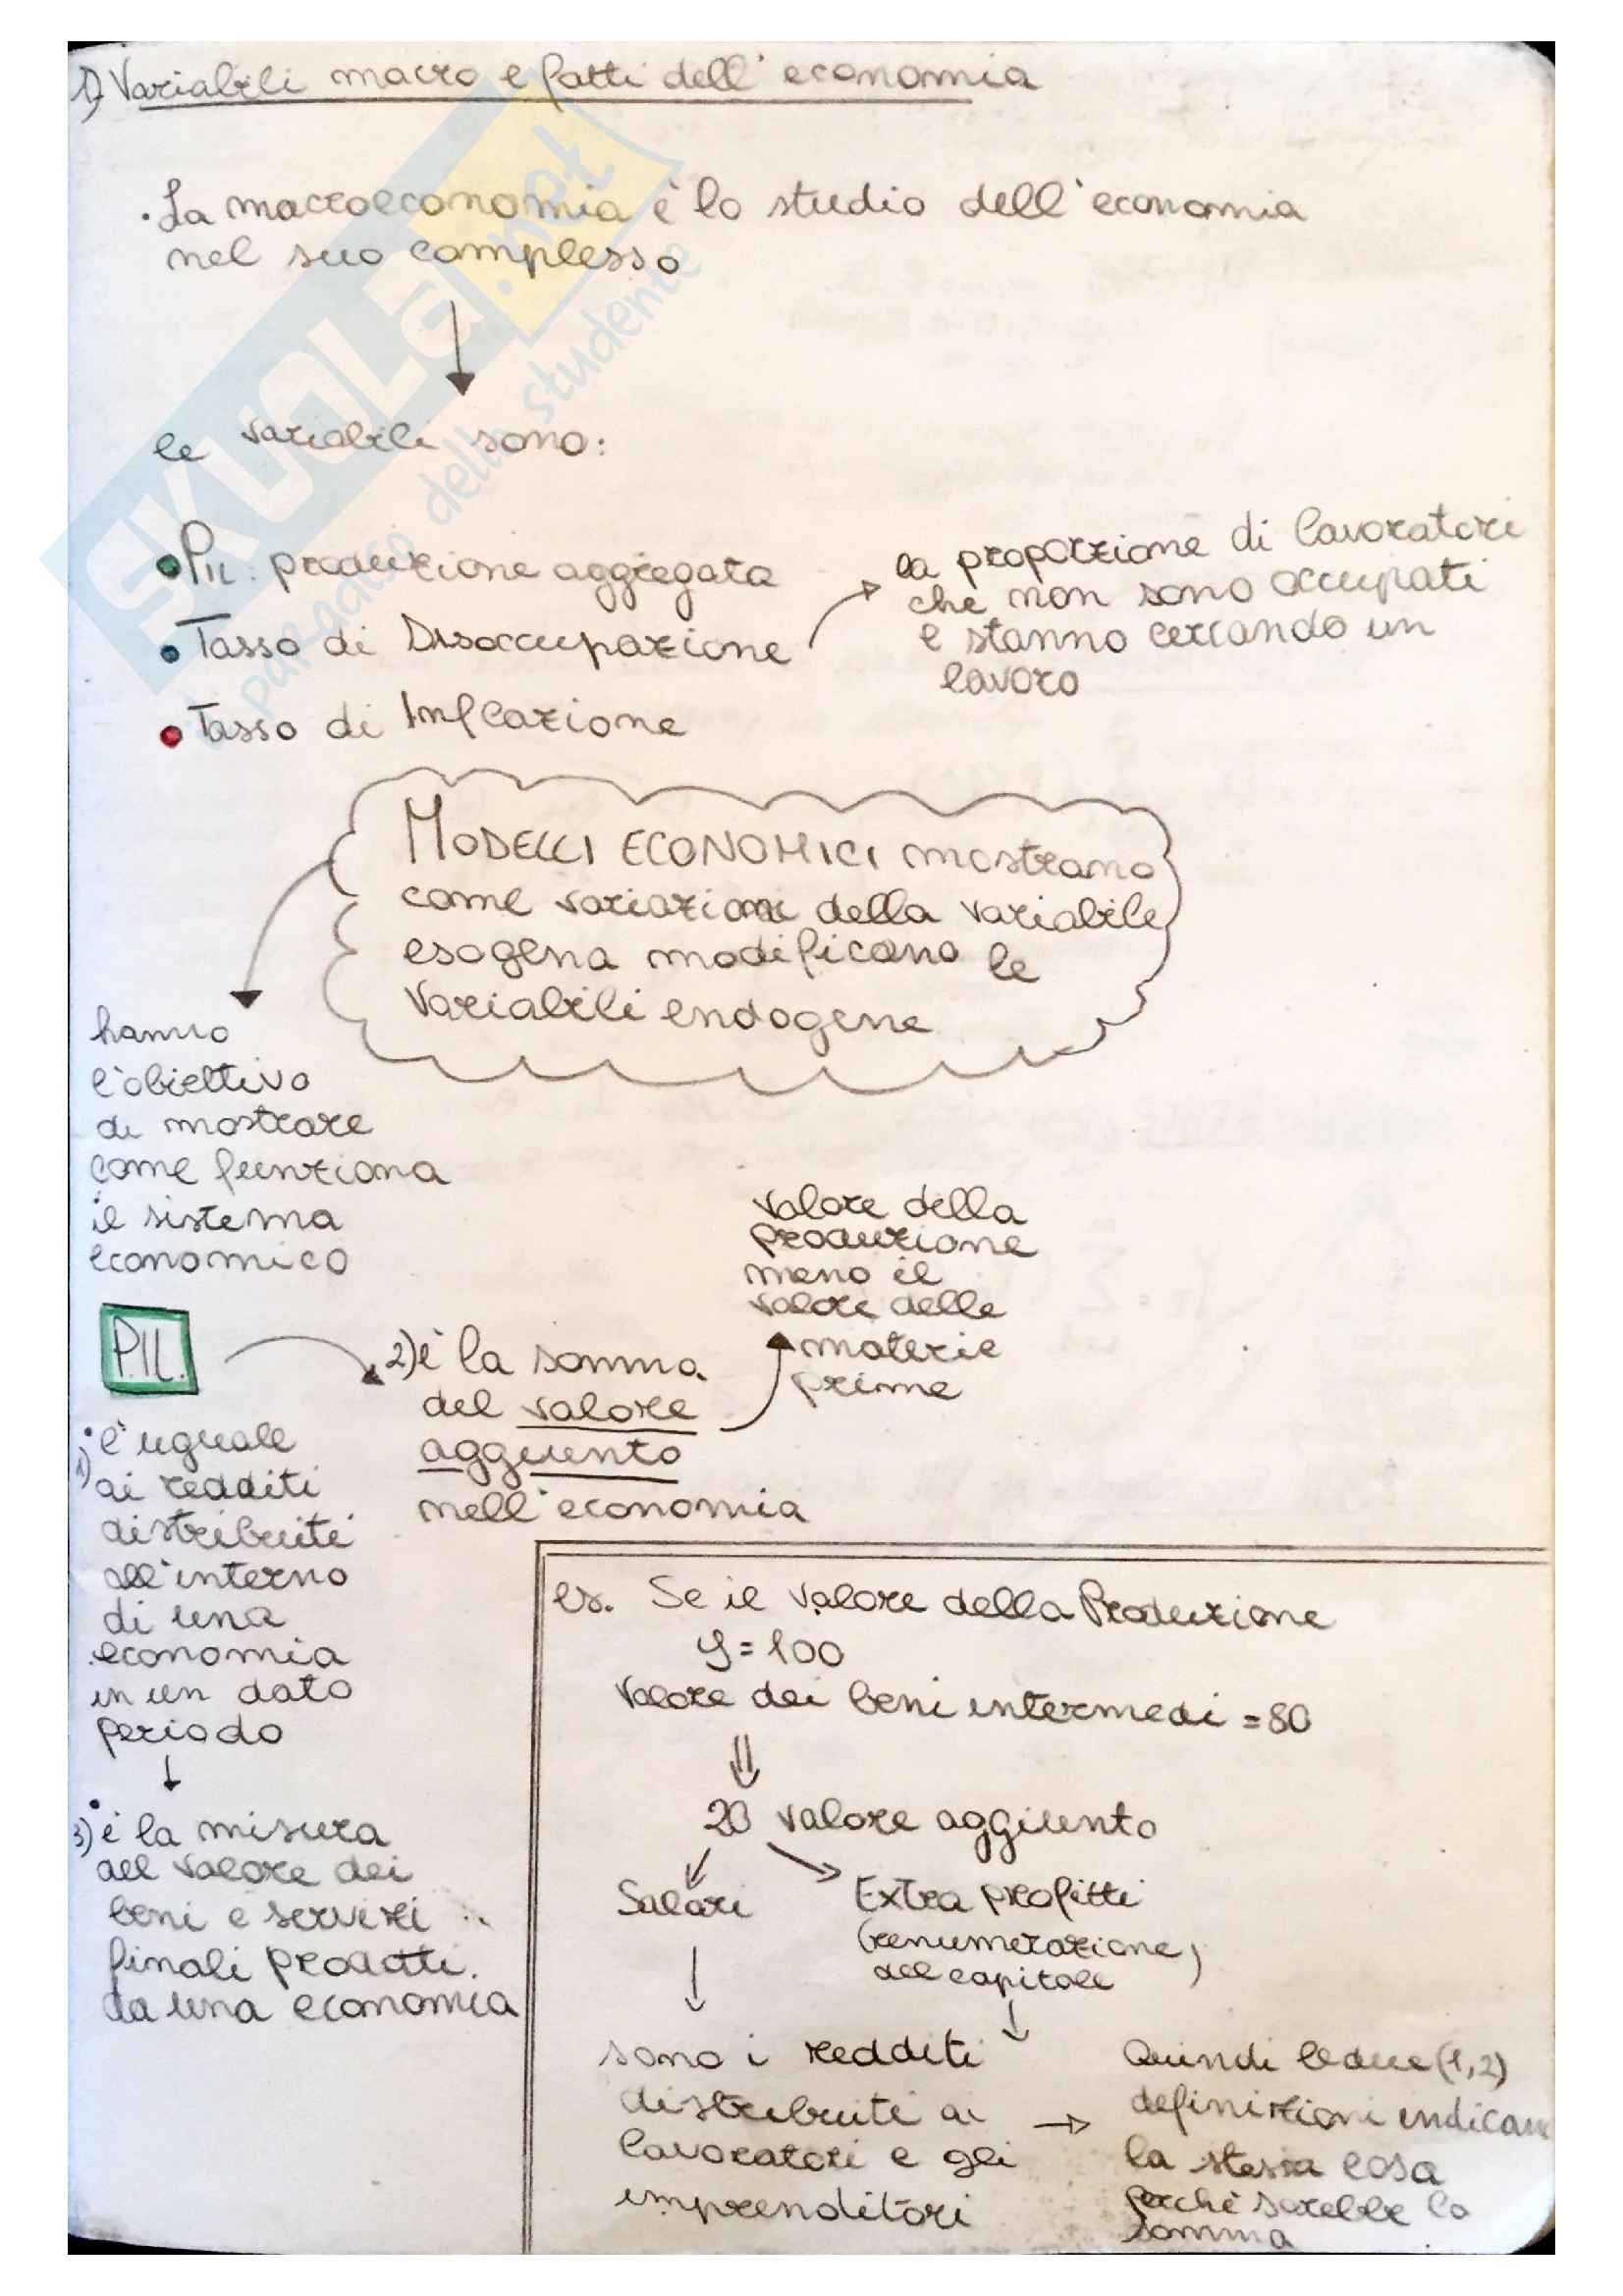 1) Variabili macro e fatti dell'economia
· La macroeconomia è lo studio dell'economia
nel suo complesso
le variabili sono:
• PIL: produzione aggregata
• Tasso di Disoccupazione
la proporzione di lavoratori
che non sono occupati
e stanno cercando un
lavoro
• Tasso di Inflazione
MODELLI ECONOMICI mostrano
come variazioni della variabile
esogena modificano le
variabili endogene
hanno
l'obiettivo
di mostrare
come funziona
il sistema
economico
P.I.L.
2) è la somma
del valore
aggiunto
nell'economia
valore della
produzione
meno il
valore delle
materie
prime
1) è uguale
ai redditi
distribuiti
all'interno
di una
economia
in un dato
periodo
3) è la misura
del valore dei
beni e servizi
finali prodotti
da una economia
es. Se il valore della Produzione
y = 100
Valore dei beni intermedi = 80
20 valore aggiunto
Salari
Extra profitti
(renumerazione
del capitale)
sono i redditi
distribuiti ai
lavoratori e gli
imprenditori
Quindi le due (1,2)
definizioni indicano
la stessa cosa
perchè sarebbe la
somma
SKUOLA.net
più gallo dello studente